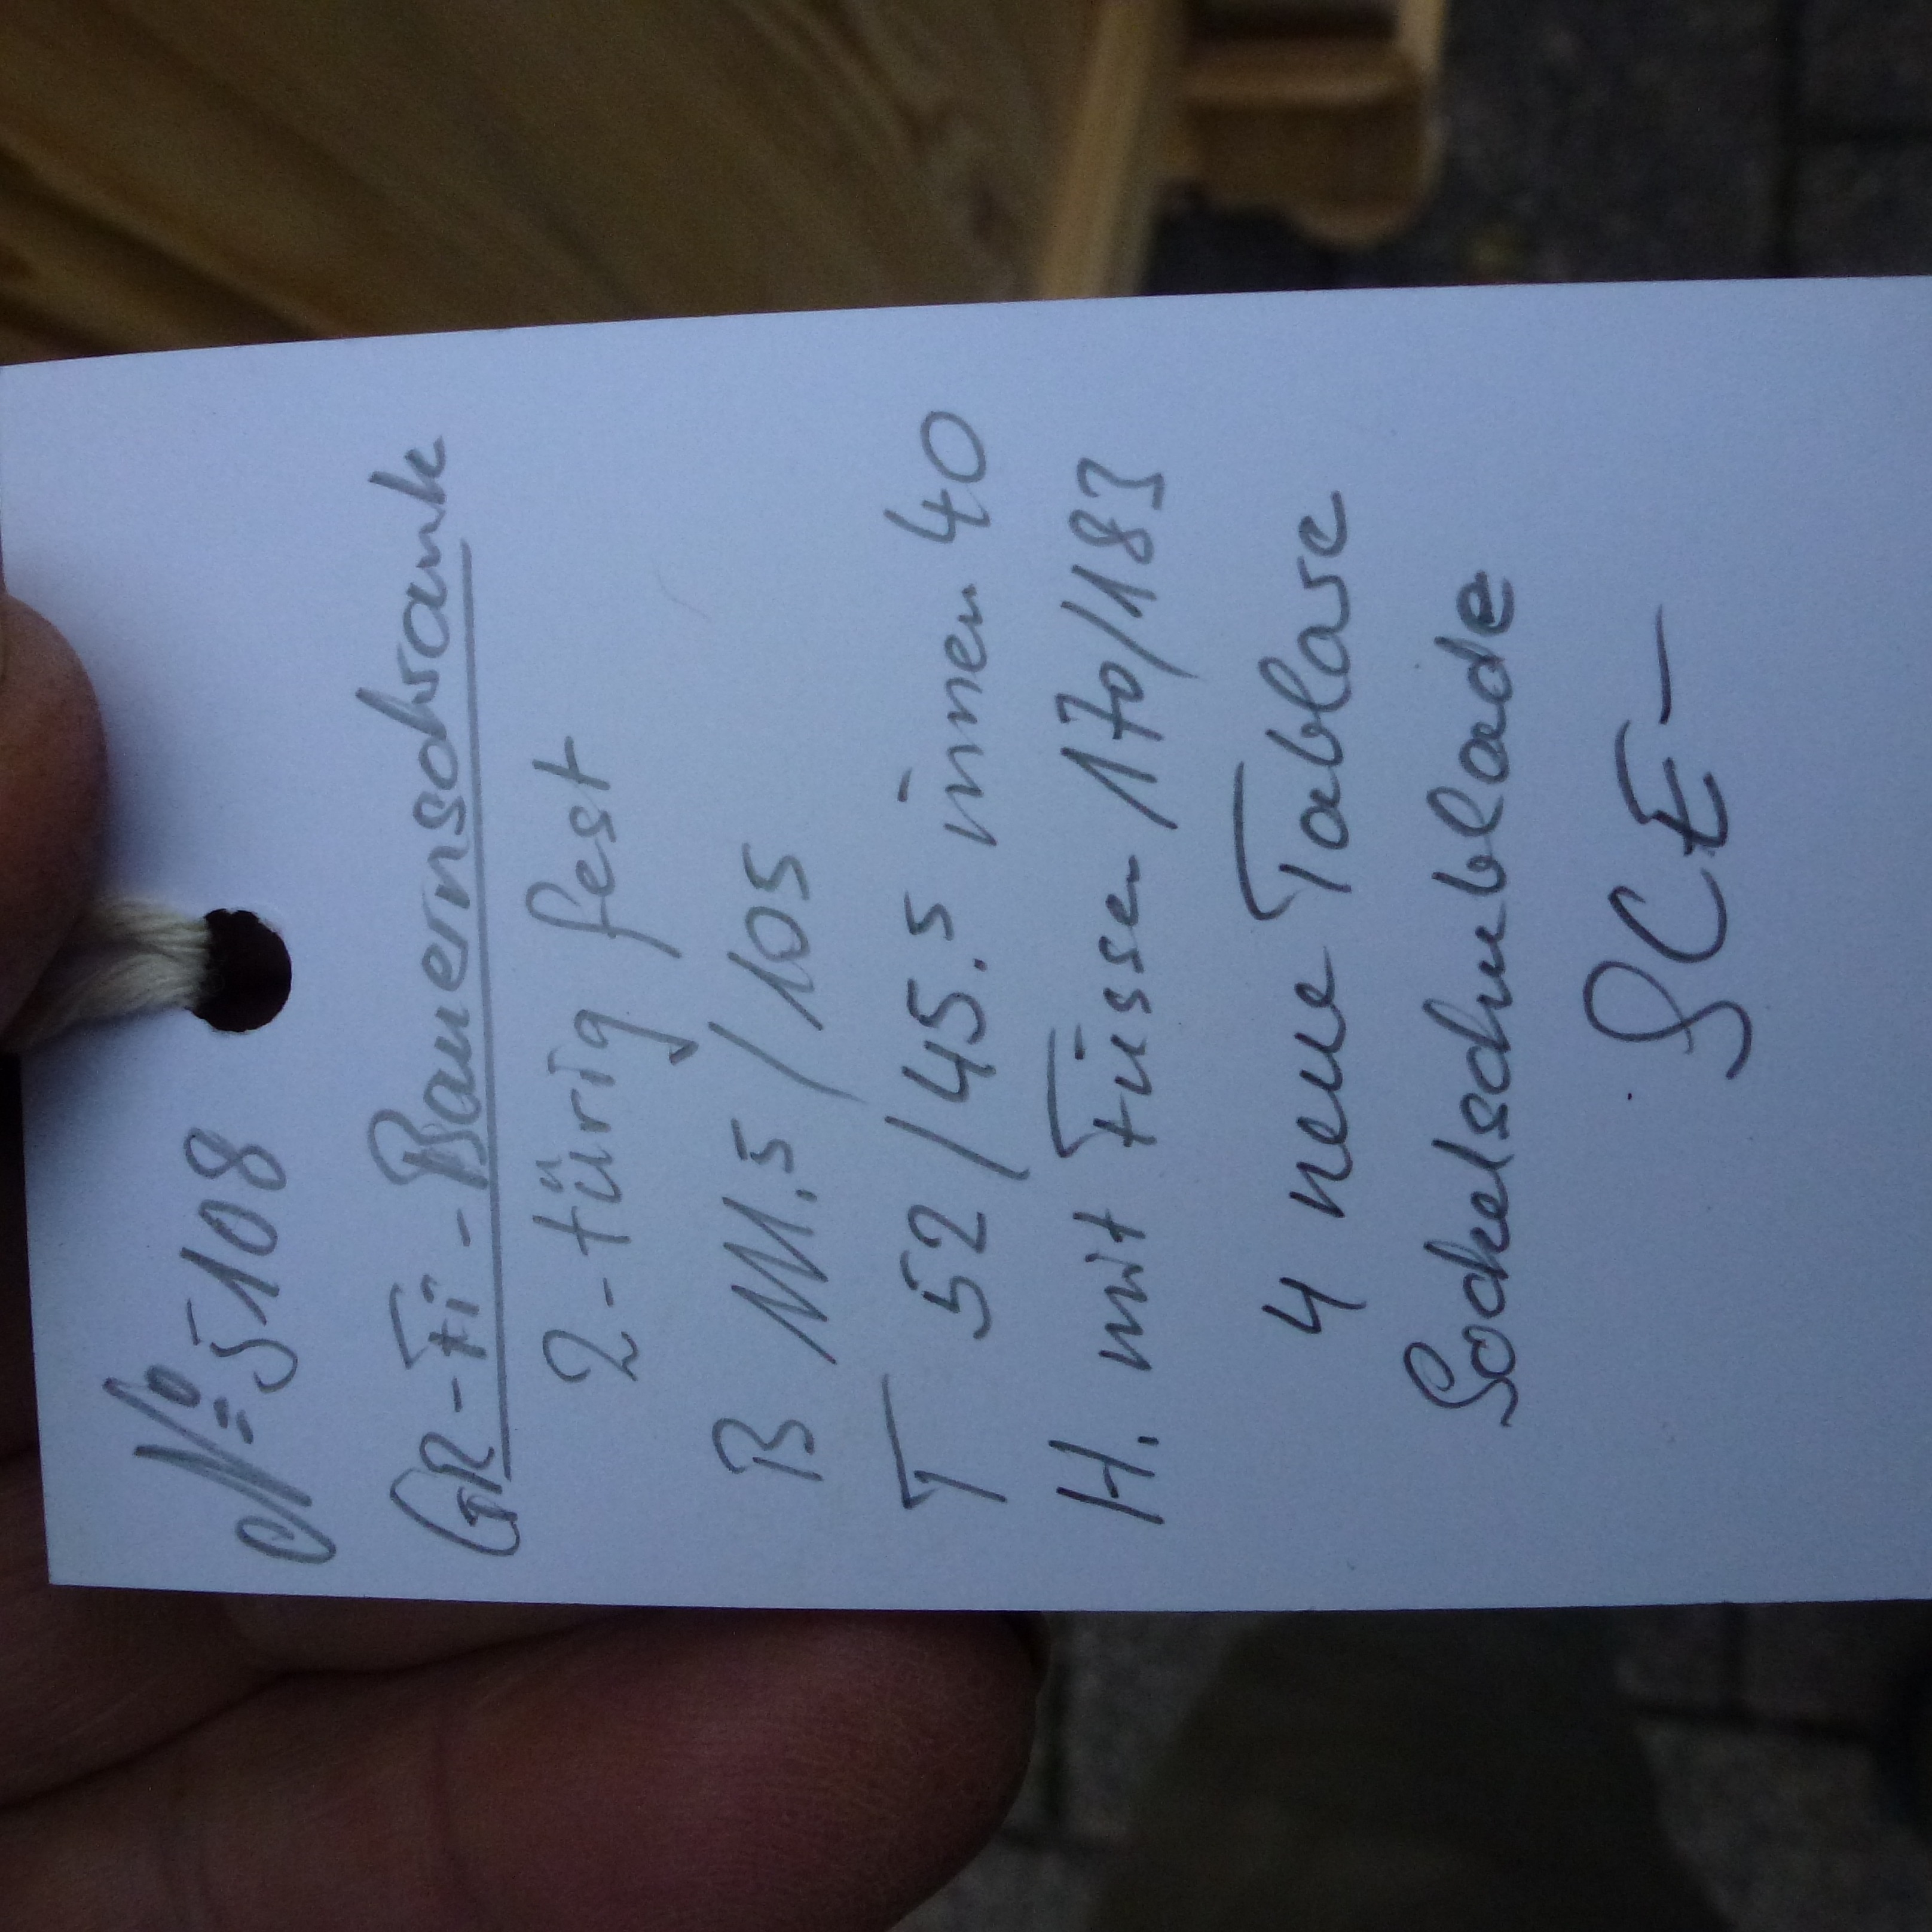 No 5108
GR-Fi-Bauernschrank
2-türig fest
B 111.5/105
T 52/45.5 innen 40
H. mit Füssen 170/183
4 neue Tablare
Sockelschublade
SCE-